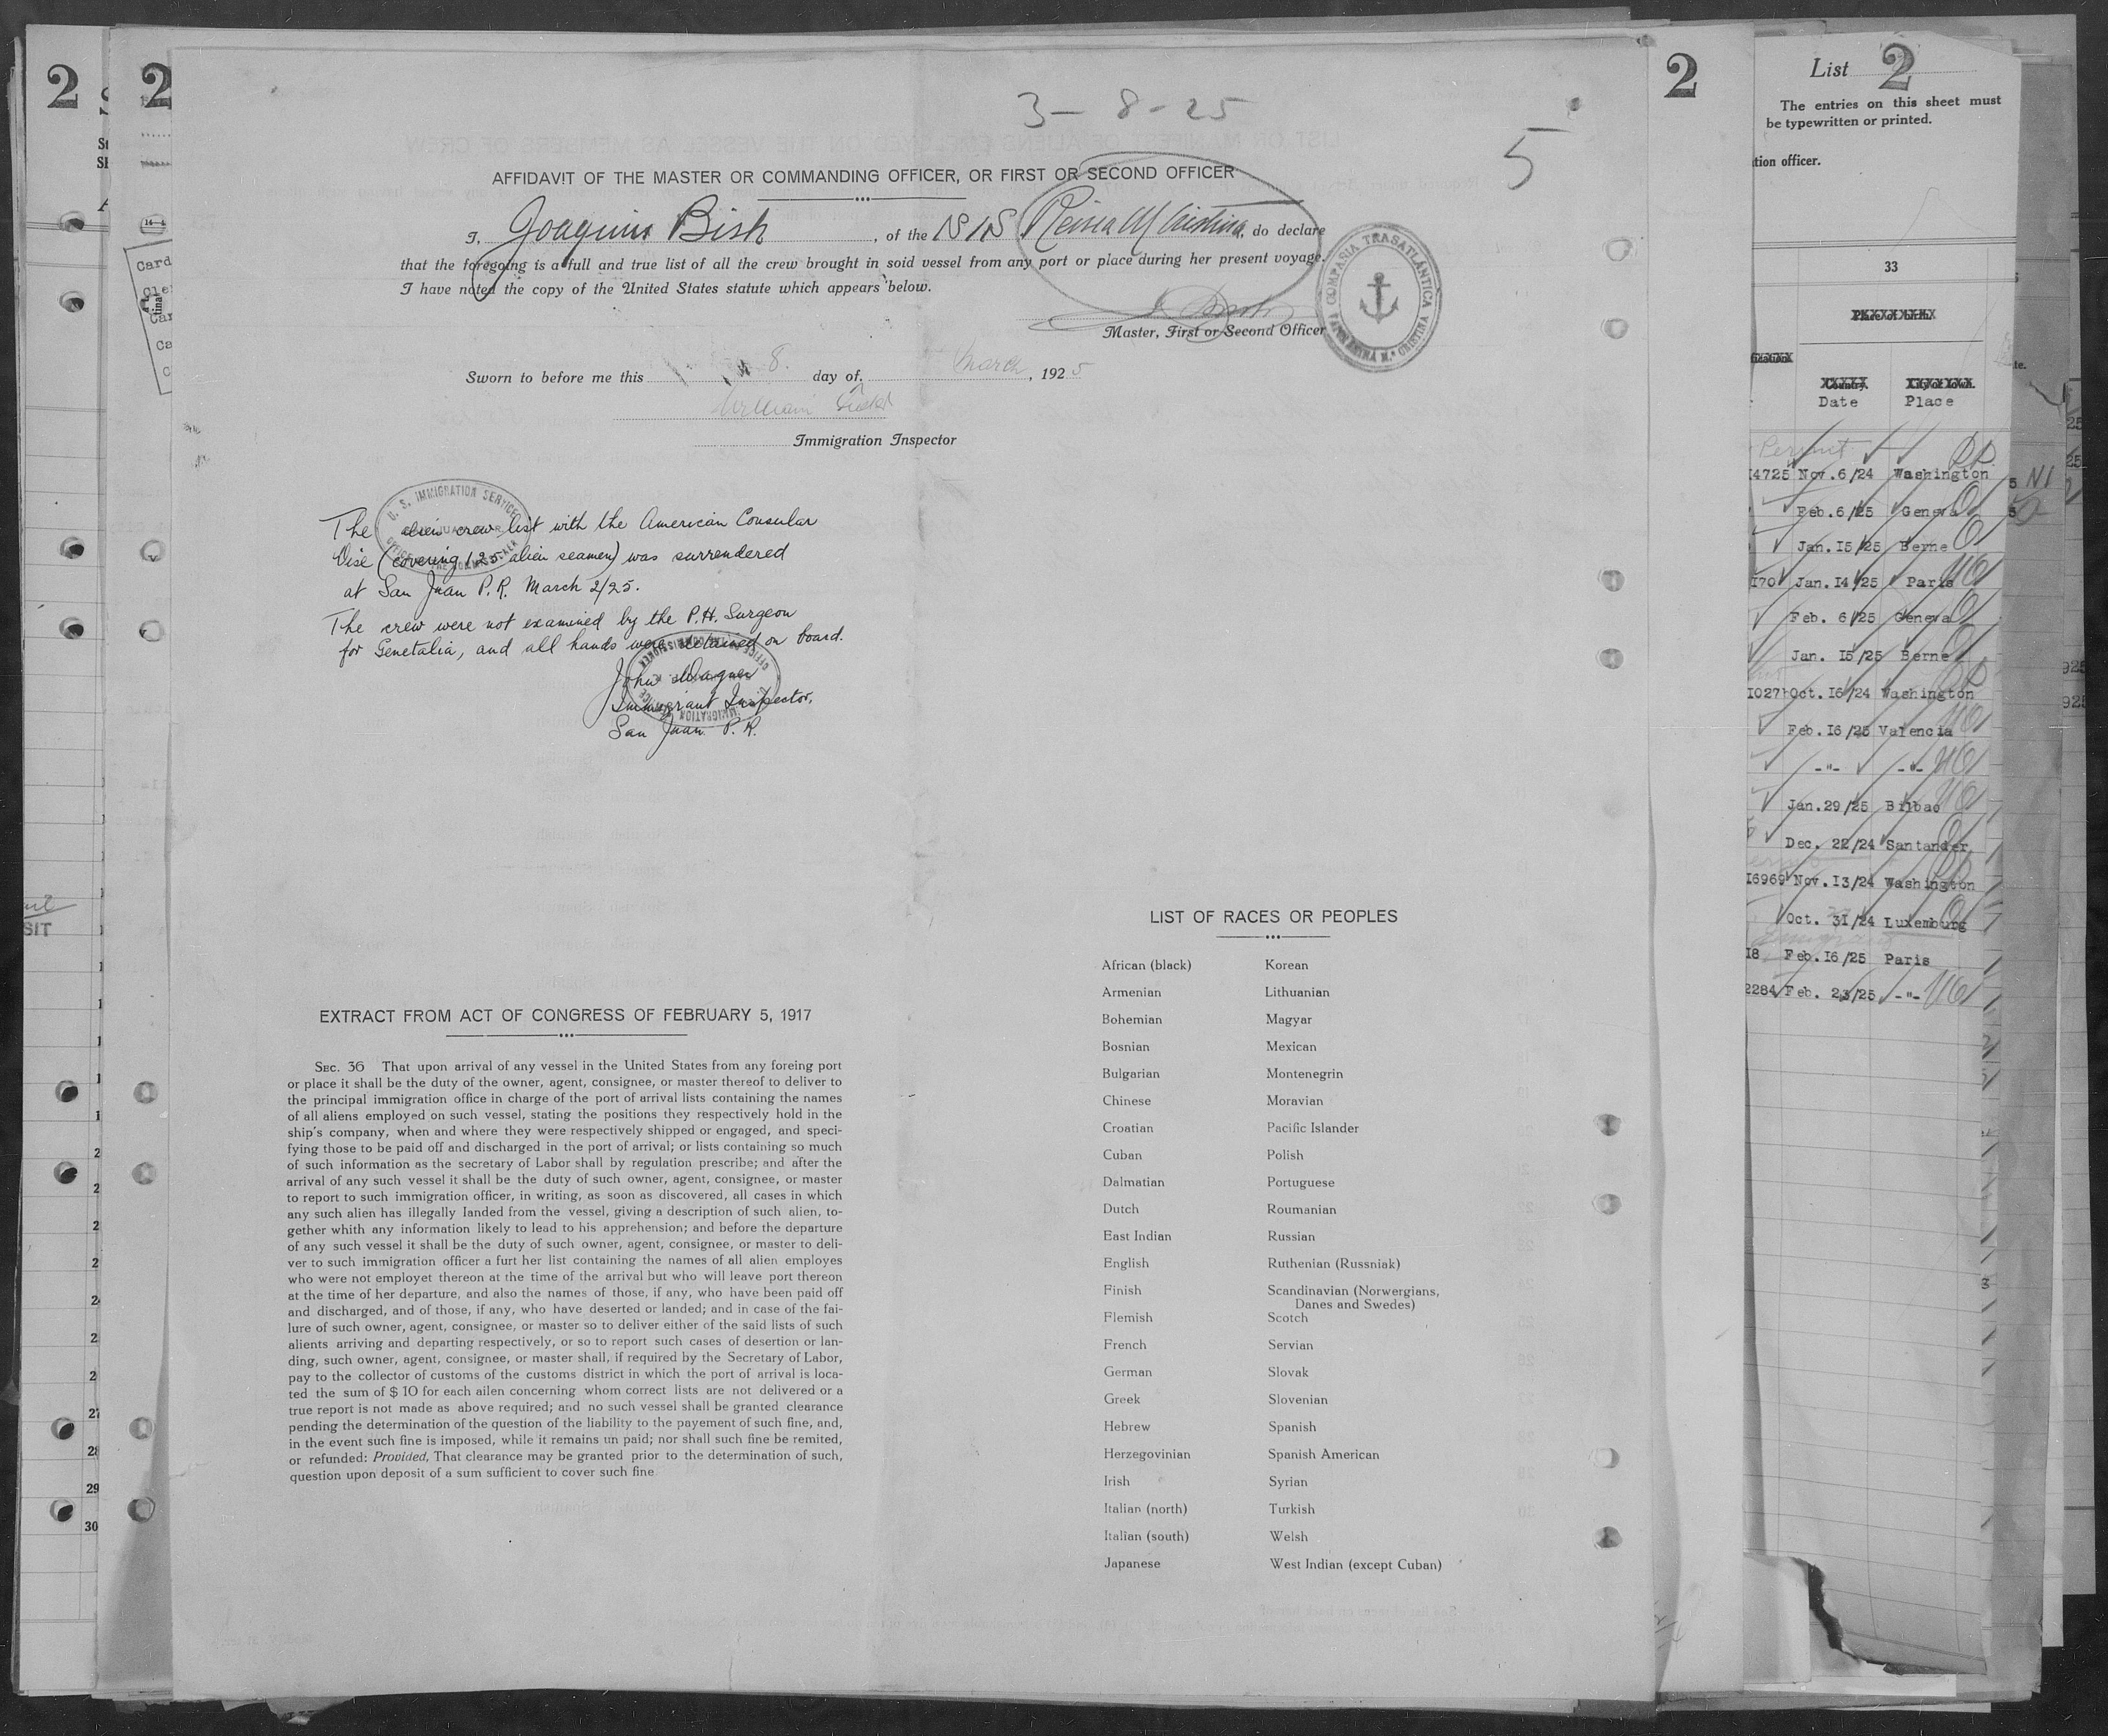 3-8-25
5
AFFIDAVIT OF THE MASTER OR COMMANDING OFFICER, OR FIRST OR SECOND OFFICER
I, Joaquin Bish, of the S/S Reina M Cristina, do declare
that the foregoing is a full and true list of all the crew brought in soid vessel from any port or place during her present voyage.
I have noted the copy of the United States statute which appears below.
Master, First or Second Officer
COMPAÑIA TRASATLÁNTICA
VAPOR REINA Mª CRISTINA
Sworn to before me this 8. day of March, 1925
William
Immigration Inspector
U. S. IMMIGRATION SERVICE
The alien crew list with the American Consular
Vise (covering 125 alien seamen) was surrendered
at San Juan P.R. March 2/25.
The crew were not examined by the P.H. Surgeon
for Genetalia, and all hands were detained on board.
John Wagner
Immigrant Inspector,
San Juan P. R.
EXTRACT FROM ACT OF CONGRESS OF FEBRUARY 5, 1917
SEC. 36 That upon arrival of any vessel in the United States from any foreing port
or place it shall be the duty of the owner, agent, consignee, or master thereof to deliver to
the principal immigration office in charge of the port of arrival lists containing the names
of all aliens employed on such vessel, stating the positions they respectively hold in the
ship's company, when and where they were respectively shipped or engaged, and speci-
fying those to be paid off and discharged in the port of arrival; or lists containing so much
of such information as the secretary of Labor shall by regulation prescribe; and after the
arrival of any such vessel it shall be the duty of such owner, agent, consignee, or master
to report to such immigration officer, in writing, as soon as discovered, all cases in which
any such alien has illegally landed from the vessel, giving a description of such alien, to-
gether whith any information likely to lead to his apprehension; and before the departure
of any such vessel it shall be the duty of such owner, agent, consignee, or master to deli-
ver to such immigration officer a furt her list containing the names of all alien employes
who were not employet thereon at the time of the arrival but who will leave port thereon
at the time of her departure, and also the names of those, if any, who have been paid off
and discharged, and of those, if any, who have deserted or landed; and in case of the fai-
lure of such owner, agent, consignee, or master so to deliver either of the said lists of such
alients arriving and departing respectively, or so to report such cases of desertion or lan-
ding, such owner, agent, consignee, or master shall, if required by the Secretary of Labor,
pay to the collector of customs of the customs district in which the port of arrival is loca-
ted the sum of $ 10 for each ailen concerning whom correct lists are not delivered or a
true report is not made as above required; and no such vessel shall be granted clearance
pending the determination of the question of the liability to the payement of such fine, and,
in the event such fine is imposed, while it remains un paid; nor shall such fine be remited,
or refunded: Provided, That clearance may be granted prior to the determination of such,
question upon deposit of a sum sufficient to cover such fine
LIST OF RACES OR PEOPLES
African (black) Korean
Armenian Lithuanian
Bohemian Magyar
Bosnian Mexican
Bulgarian Montenegrin
Chinese Moravian
Croatian Pacific Islander
Cuban Polish
Dalmatian Portuguese
Dutch Roumanian
East Indian Russian
English Ruthenian (Russniak)
Finish Scandinavian (Norwergians,
Danes and Swedes)
Flemish Scotch
French Servian
German Slovak
Greek Slovenian
Hebrew Spanish
Herzegovinian Spanish American
Irish Syrian
Italian (north) Turkish
Italian (south) Welsh
Japanese West Indian (except Cuban)
2
2
2
List 2
The entries on this sheet must
be typewritten or printed.
tion officer.
33
Date Place
Permit
14725 Nov. 6/24 Washington
Feb. 6/25 Geneva
Jan. 15/25 Berne
170 Jan. 14/25 Paris
Feb. 6/25 Geneva
Jan. 15/25 Berne
10271 Oct. 16/24 Washington
Feb. 16/25 Valencia
-"- -"-
Jan. 29/25 Bilbao
Dec. 22/24 Santander
16969 Nov. 13/24 Washington
Oct. 31/24 Luxemburg
18 Feb. 16/25 Paris
2284 Feb. 23/25 -"-